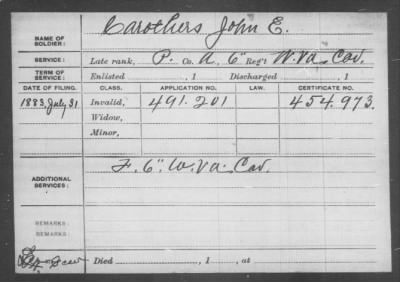 Carothers John E.
NAME OF SOLDIER:
SERVICE: Late rank, P. Co. A, 6" Reg't W. Va Cav.
TERM OF SERVICE: Enlisted , 1 Discharged , 1
DATE OF FILING. CLASS. APPLICATION NO. LAW. CERTIFICATE NO.
1883, July 31 Invalid, 491.201 454.973.
Widow,
Minor,
ADDITIONAL SERVICES: F. 6" W. Va. Cav.
REMARKS:
REMARKS:
Died , 1 , at